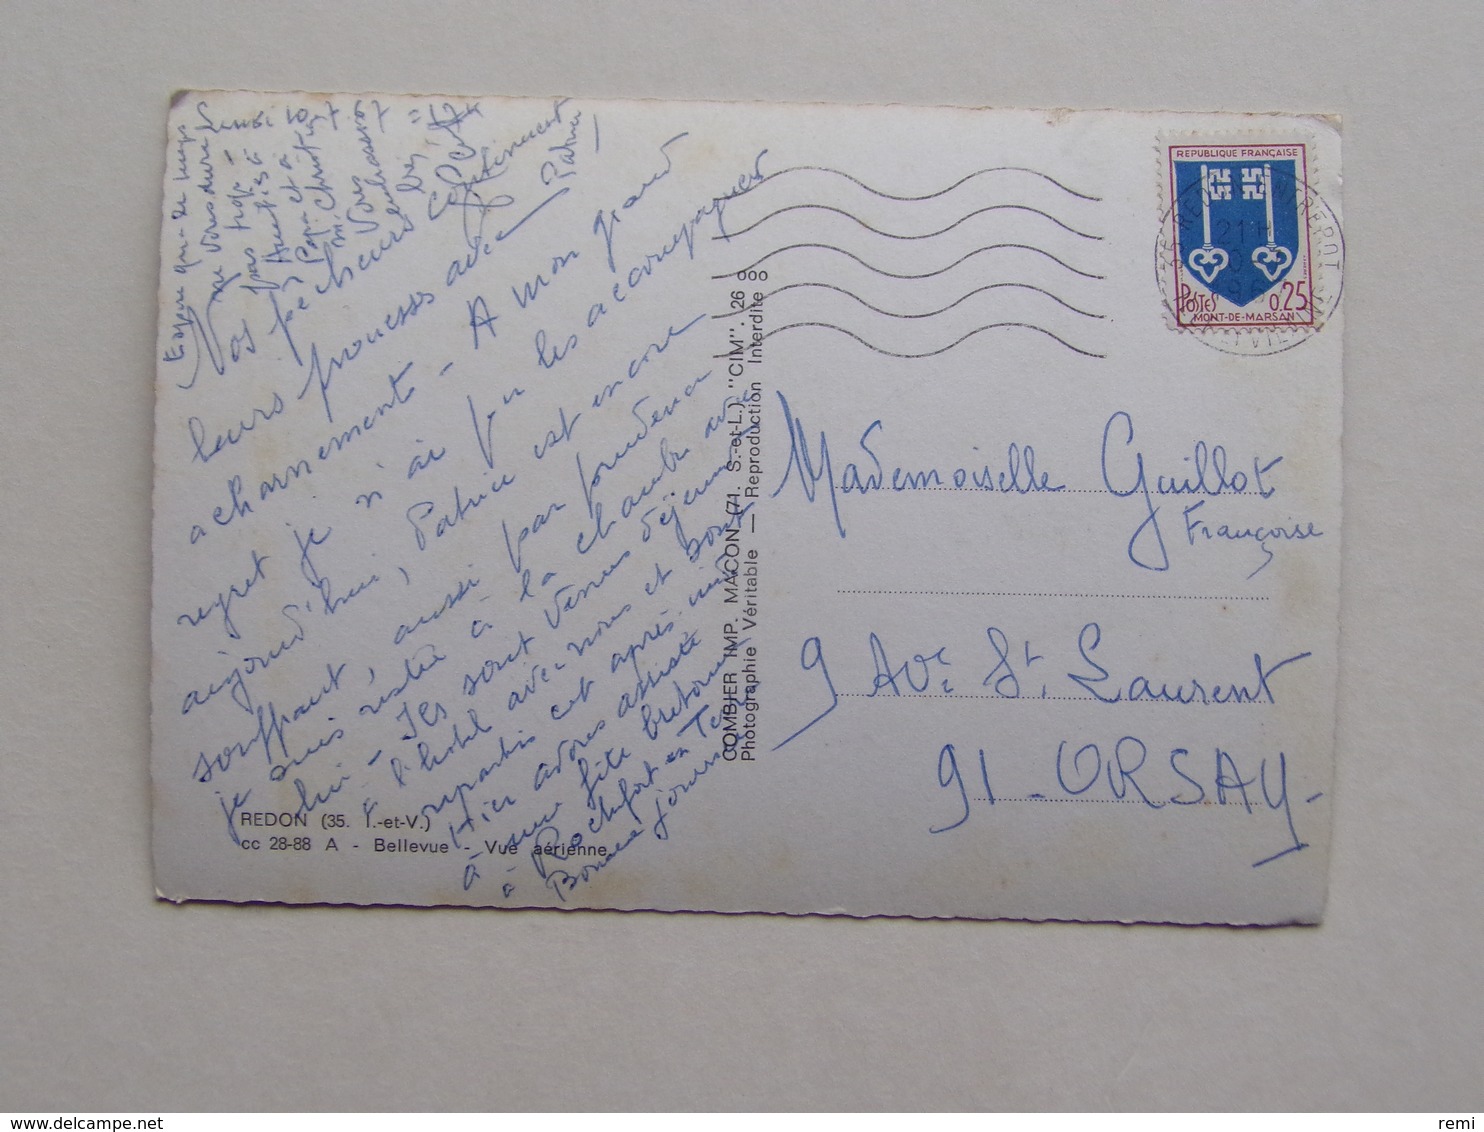 Vos pêcheurs
leurs prouesses avec
acharnement - A mon grand
regret je n'ai pu les accompagner
aujourd'hui, Patrice est encore
souffrant, aussi par prudence
je suis restée à la chambre avec
lui - Ils sont venus déjeuner
à l'hôtel avec nous et sont
repartis cet après midi
Hier avons assisté
à une fête bretonne
à Rochefort en Terre
Bonne journée
vous
pas trop
Amitiés à
Papa et à
Vous
embrasse
REDON (35. I.-et-V.)
cc 28-88 A - Bellevue - Vue aérienne
COMBIER IMP. MACON (71. S.-et-L.) "CIM". 26
Photographie Véritable — Reproduction Interdite
REPUBLIQUE FRANÇAISE
POSTES 0,25
MONT-DE-MARSAN
21 H
Mademoiselle Guillot
Françoise
9 Ave St. Laurent
91 - ORSAY -
delcampe.net
remi